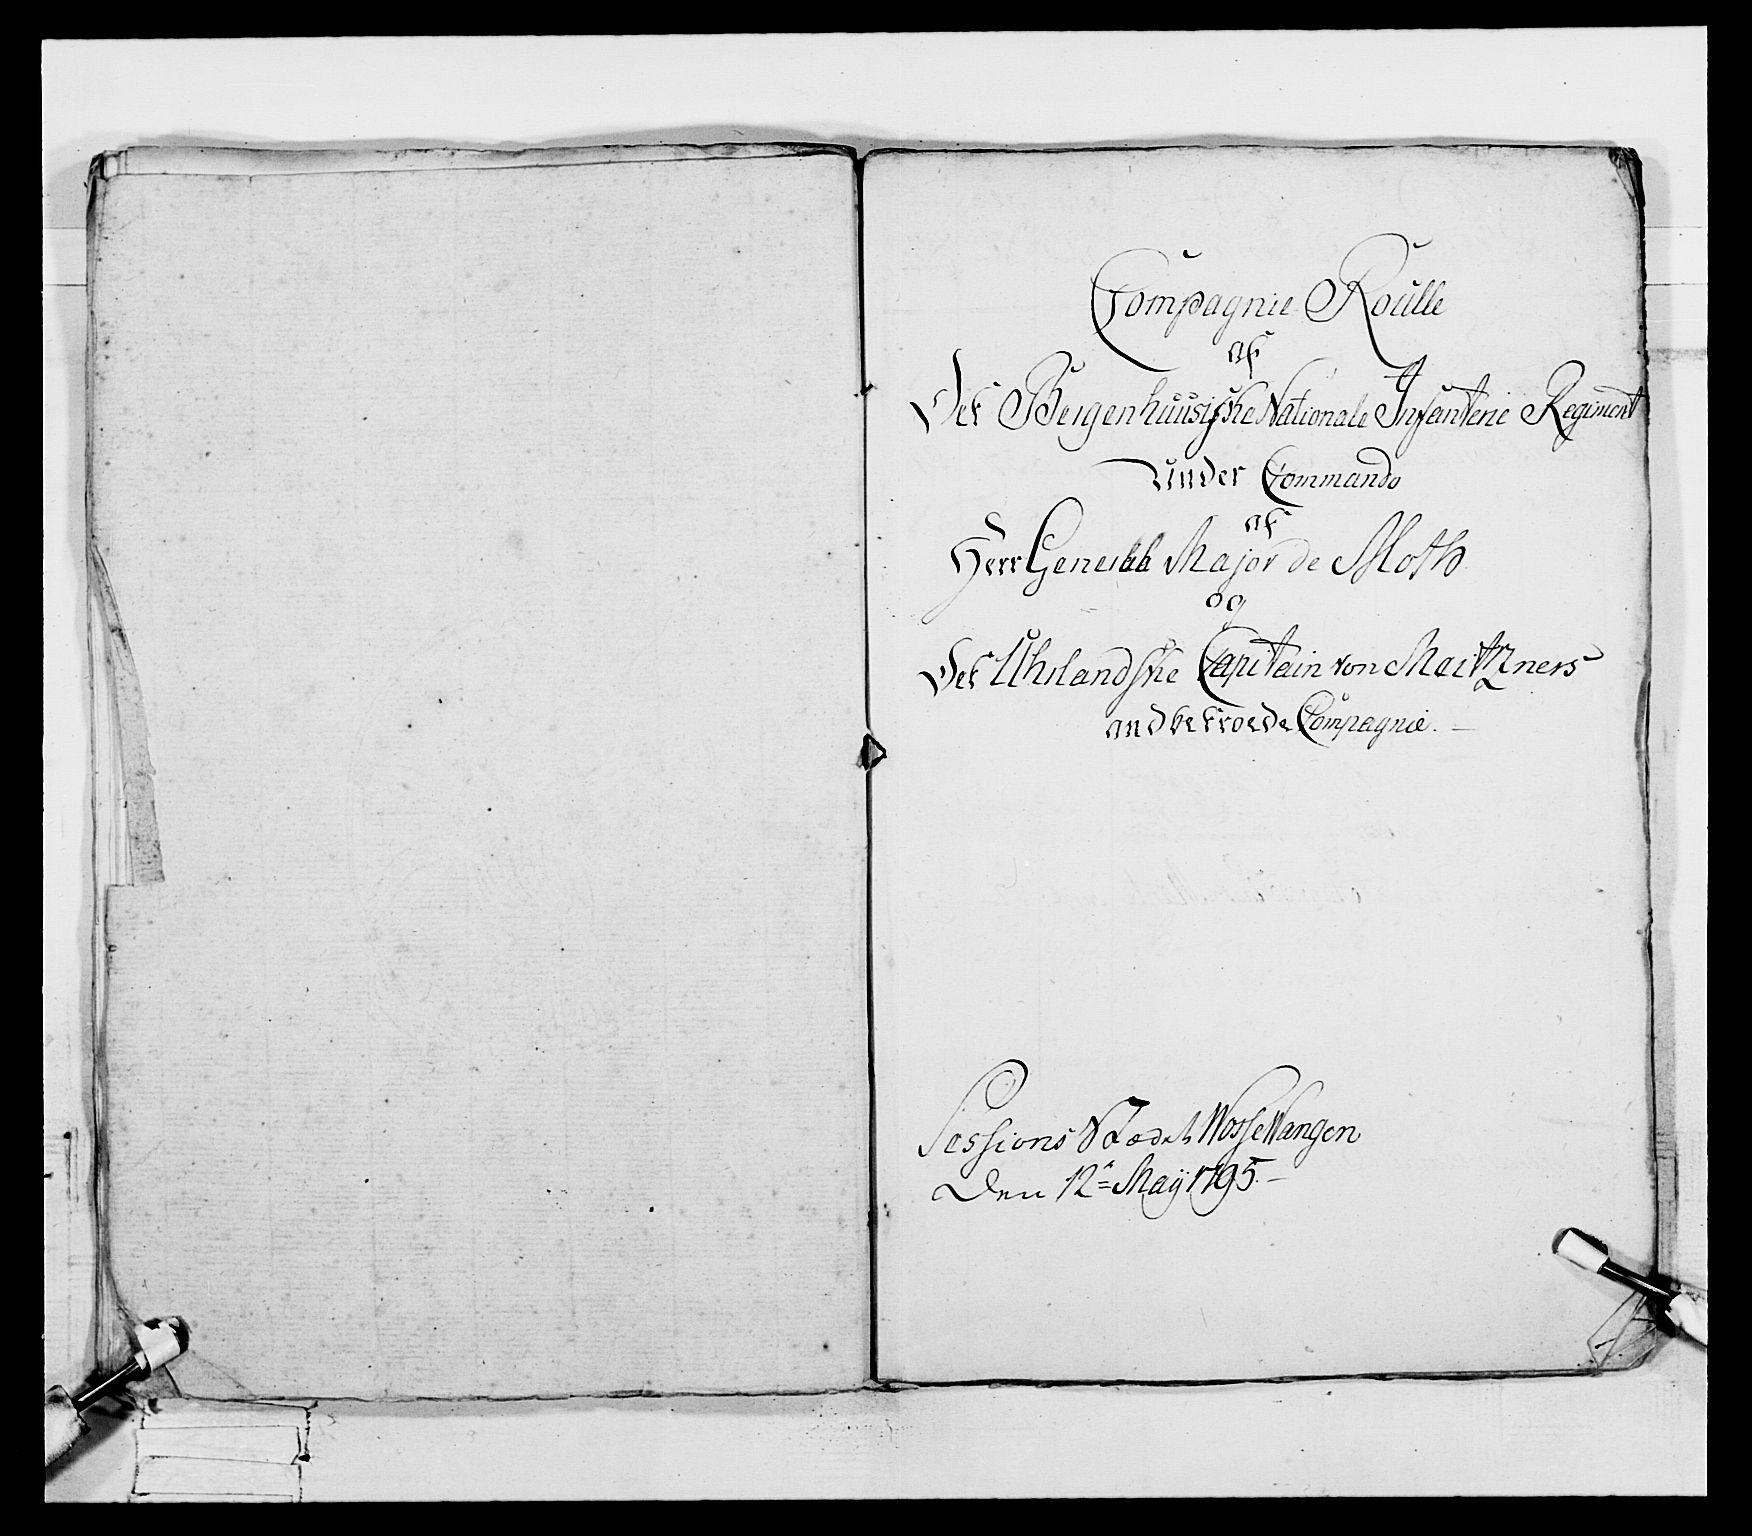 Compagnie Roulle
af
Det Bergenhuusiske Nationale Infanterie Regiment
under Commando
af
Herr General Major de Moth
og
Det Uhrlandske Capitain von Meitzners
andbetroede Compagnie. —
Sessions Stædet Wossewangen
Den 12te Maÿ 1795. —